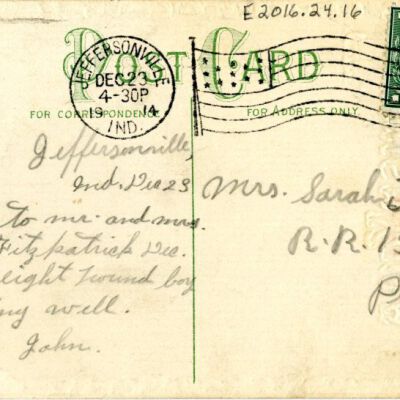 E2016.24.16
POST CARD
JEFFERSONVILLE
DEC 23
4-30P
1914
IND.
FOR CORRESPONDENCE
FOR ADDRESS ONLY
Jeffersonville,
Ind. Dec 23
to Mr. and Mrs.
Fitzpatrick Dec.
eight pound boy
well.
John.
Mrs. Sarah
R.R.